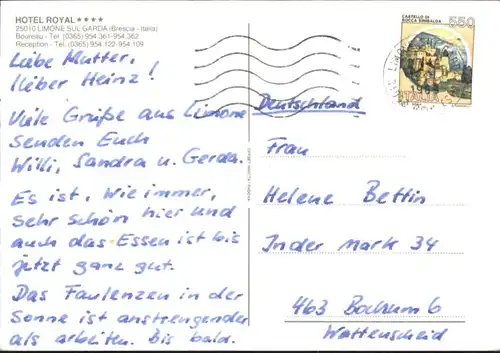 HOTEL ROYAL ★★★★
25010 LIMONE SUL GARDA (Brescia - Italia)
Boureau - Tel (0365) 954 361-954 362
Reception - Tel. (0365) 954.122-954.109
Liebe Mutter,
lieber Heinz!
Viele Grüße aus Limone
senden Euch
Willi, Sandra u. Gerda.
Es ist, wie immer,
sehr schön hier und
auch das Essen ist bis
jetzt ganz gut.
Das Faulenzen in der
Sonne ist anstrengender
als arbeiten. Bis bald.
CASTELLO DI
ROCCA SINIBALDA
550
ITALIA
Deutschland
Frau
Helene Bettin
In der Mark 34
463 Bochum 6
Wattenscheid